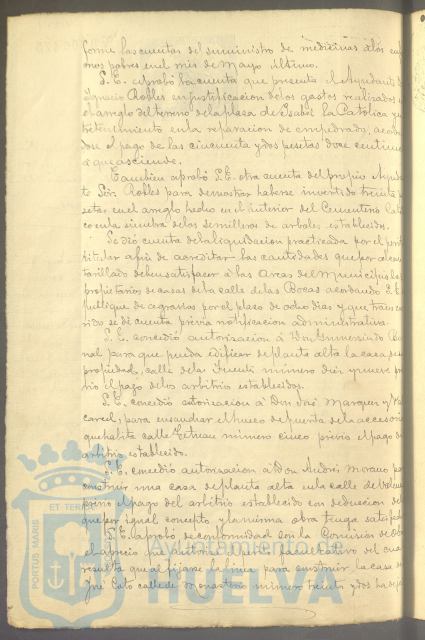 forme las cuentas del suministro de medicinas a los en
mos pobres en el mes de Mayo último.
S. E. aprobó la cuenta que presenta el Ayudante
Ignacio Robles en justificación de los gastos realizados
el arreglo del terreno de la plaza de Isabel la Católica y en
tretenimiento en la reparación de empedrado, acordan
dose el pago de las cincuenta y dos pesetas doce centimos
a que asciende.
Tambien aprobó S. E. otra cuenta del propio Ayudan
te Sor. Robles para demostrar haberse invertido treinta pe
setas en el arreglo hecho en el interior del Cementerio Cató
co en la siembra de los semilleros de arboles establecidos.
Se dió cuenta de la liquidacion practicada por el peri
titular a fin de acreditar las cantidades que por alcan
tarillado deben satisfacer á las Arcas del Municipio los
propietarios de casas de la calle de las Bocas acordando S. E.
publique de agravios por el plazo de ocho dias y que trans
rido se dé cuenta previa notificacion administrativa.
S. E. concedió autorizacion á Don Gumersindo
nal para que pueda edificar de planta alta la casa de su
propiedad, calle de la Fuente número diez y nueve pre
vio el pago de los arbitrios establecidos.
S. E. concedió autorizacion á Don José Marquez y
carcel, para ensanchar el hueco de puerta de la accesoria
que habita calle Tetuan número cinco previo el pago de
arbitrio establecido.
S. E. concedió autorizacion á Don Andrés Morano pa
construir una casa de planta alta en la calle de
previo el pago del arbitrio establecido con deduccion del
que por igual concepto y la misma obra tenga satisfecho
S. E. aprobó de conformidad con la Comision de
el aprecio pericial
resulta que al fijarse la linea para construir la casa de
José Coto calle de Monasterio número treinta y dos ha de
PORTUS MARIS
ET TERRAE
Ayuntamiento de
HUELVA